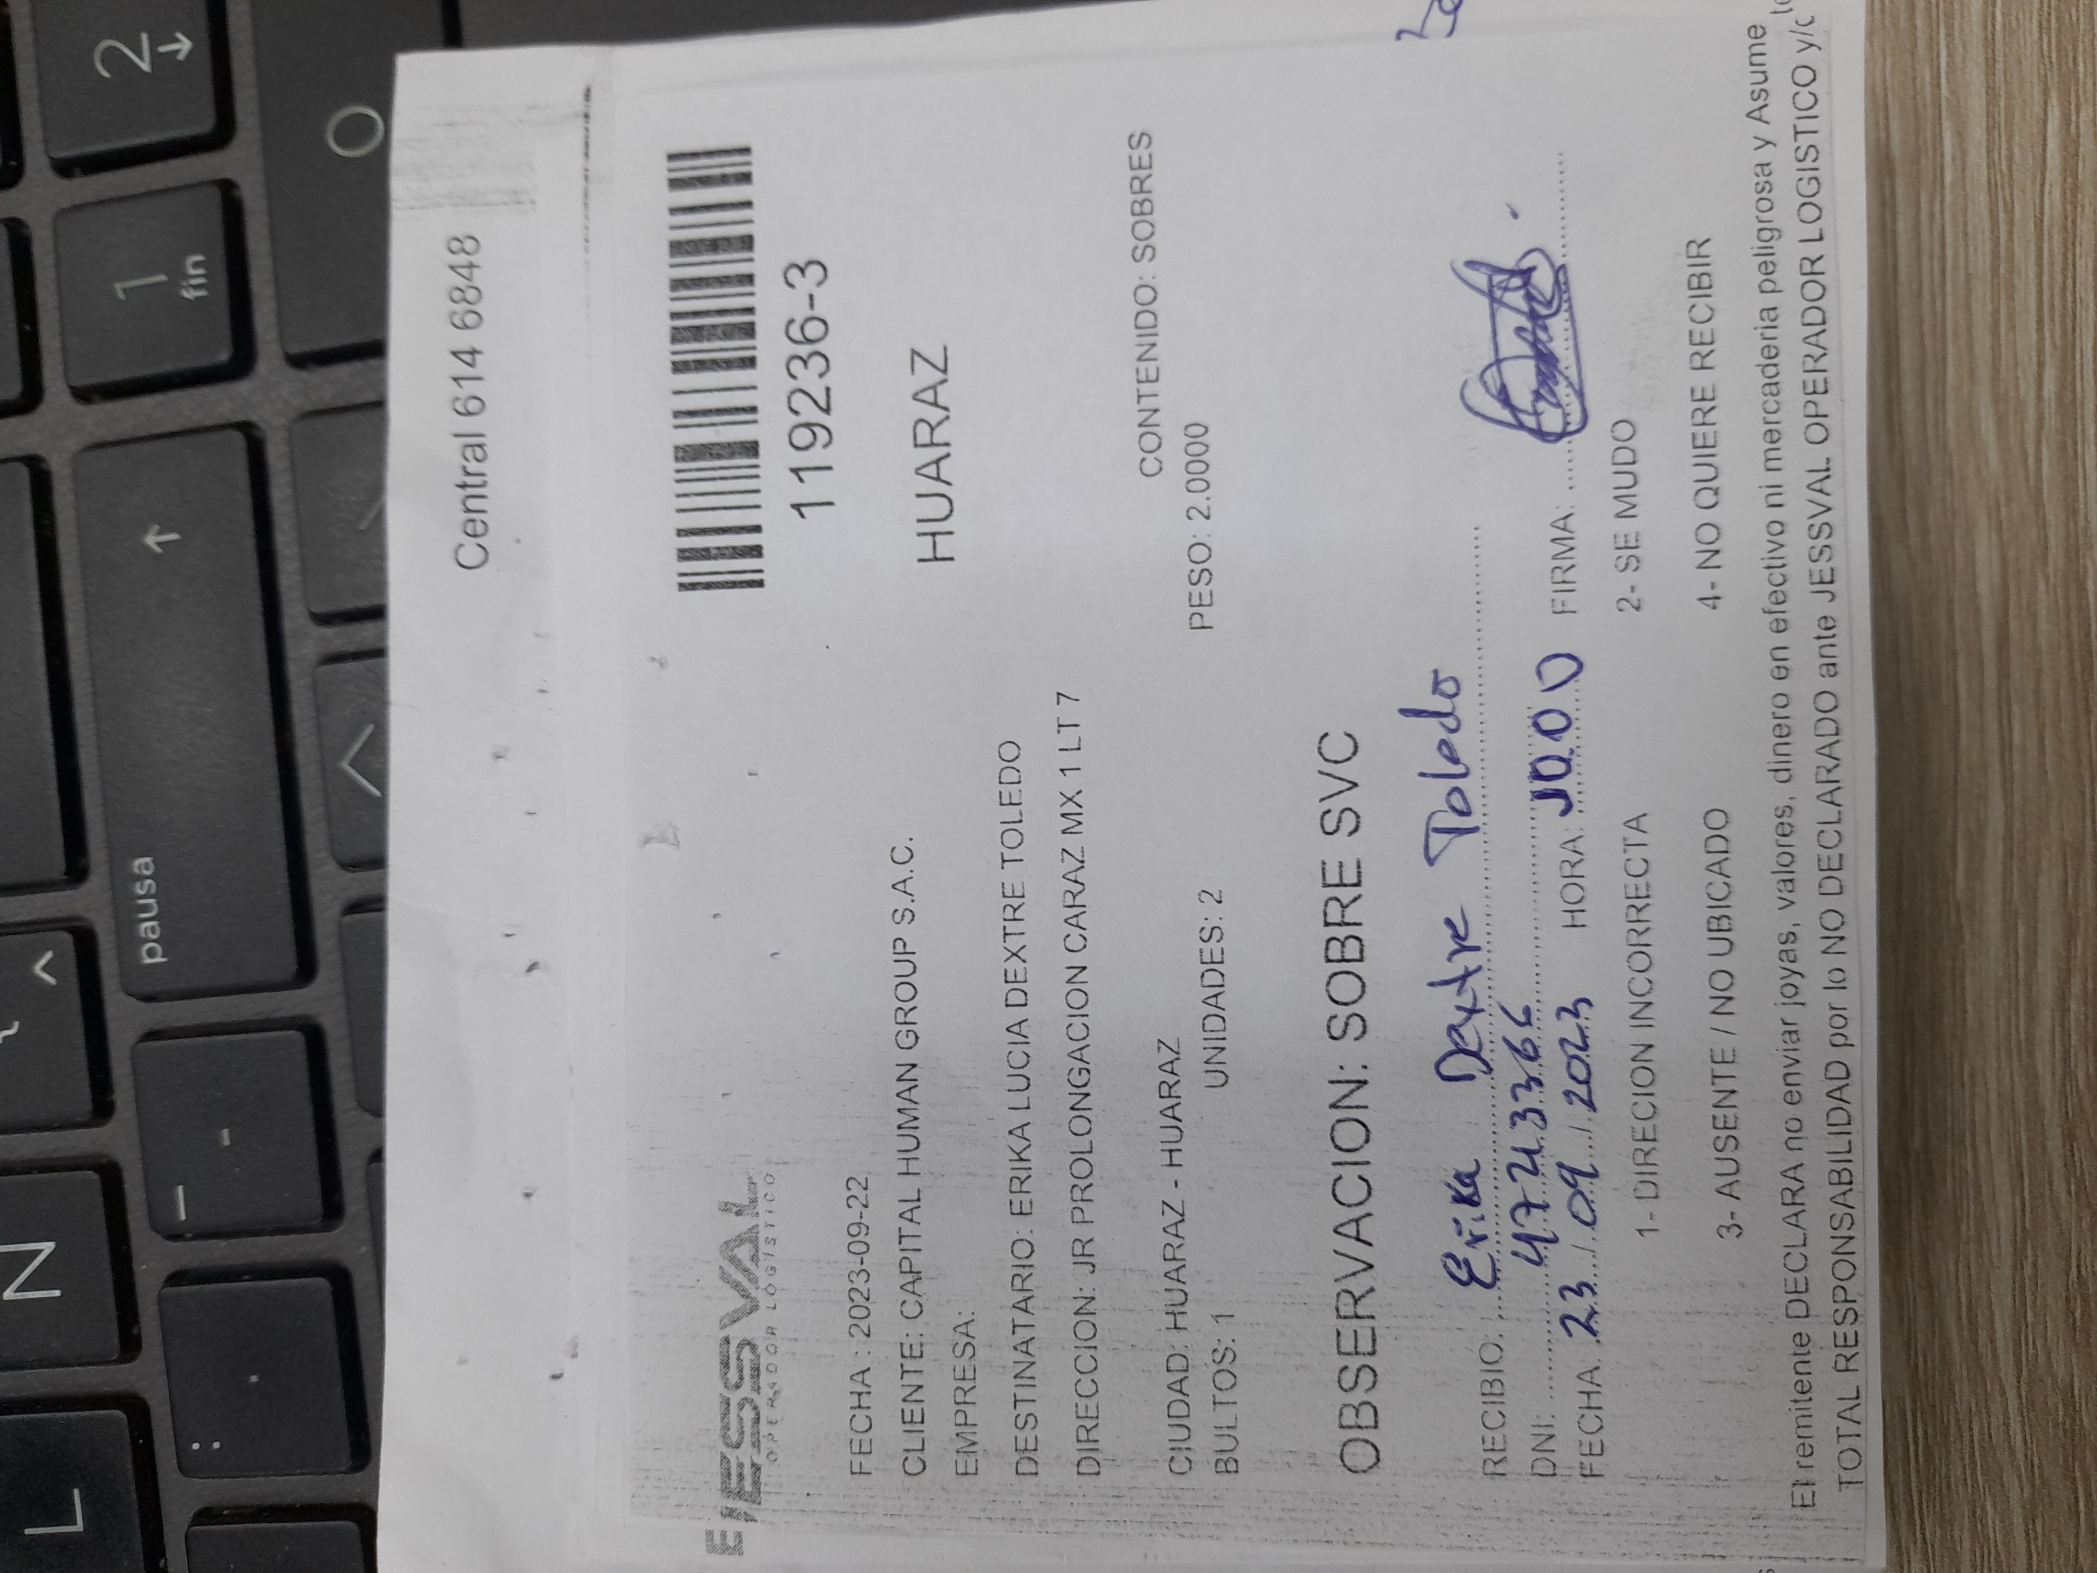 L
N
pausa
1
fin
2
0
Central 614 6848
JESSVAL
OPERADOR LOGÍSTICO
119236-3
FECHA : 2023-09-22
CLIENTE: CAPITAL HUMAN GROUP S.A.C.
HUARAZ
EMPRESA:
DESTINATARIO: ERIKA LUCIA DEXTRE TOLEDO
DIRECCION: JR PROLONGACION CARAZ MX 1 LT 7
CONTENIDO: SOBRES
CIUDAD: HUARAZ - HUARAZ
BULTOS: 1 UNIDADES: 2 PESO: 2.0000
OBSERVACION: SOBRE SVC
RECIBIO: Erika Dextre Toledo
DNI:
FECHA: 23 / 09 / 2023 HORA: 10.00 FIRMA:
1- DIRECION INCORRECTA 2- SE MUDO
3- AUSENTE / NO UBICADO 4- NO QUIERE RECIBIR
El remitente DECLARA no enviar joyas, valores, dinero en efectivo ni mercaderia peligrosa y Asume
TOTAL RESPONSABILIDAD por lo NO DECLARADO ante JESSVAL OPERADOR LOGISTICO y/o